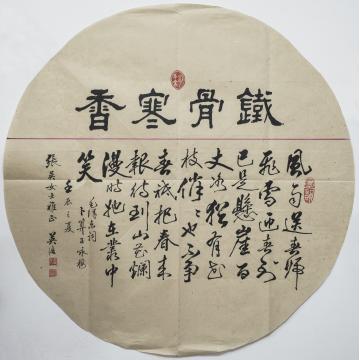 鐵骨寒香
風雨送春歸
飛雪迎春到
已是懸崖百
丈冰猶有花
枝俏〻也不爭
春祇把春來
報待到山花爛
漫時她在叢中
笑
毛澤东詞
卜算子咏梅
壬辰之夏
張英女士雅正